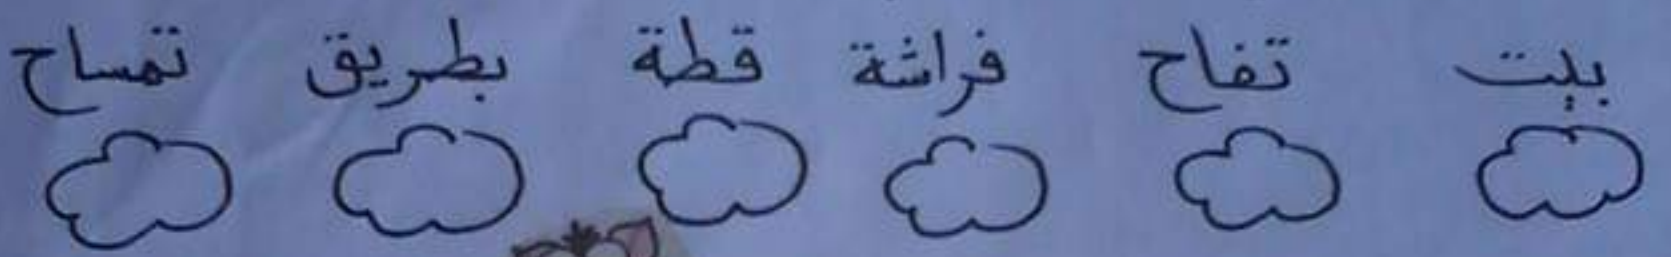 بيت تفاح فراشة قطة بطريق تمساح